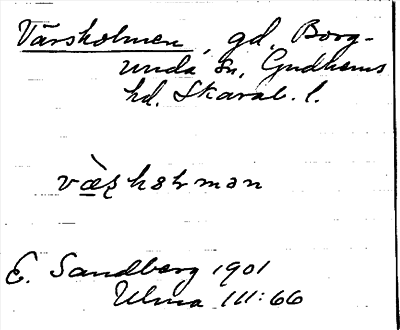 Vårsholmen, gd, Borg-
unda sn, Gudhems
hd. Skarab. l.
E. Sandberg 1901
Ulma 111:66